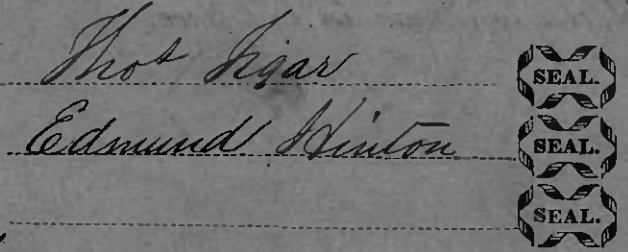 Thos SEAL.
Edmund Hinton SEAL.
SEAL.